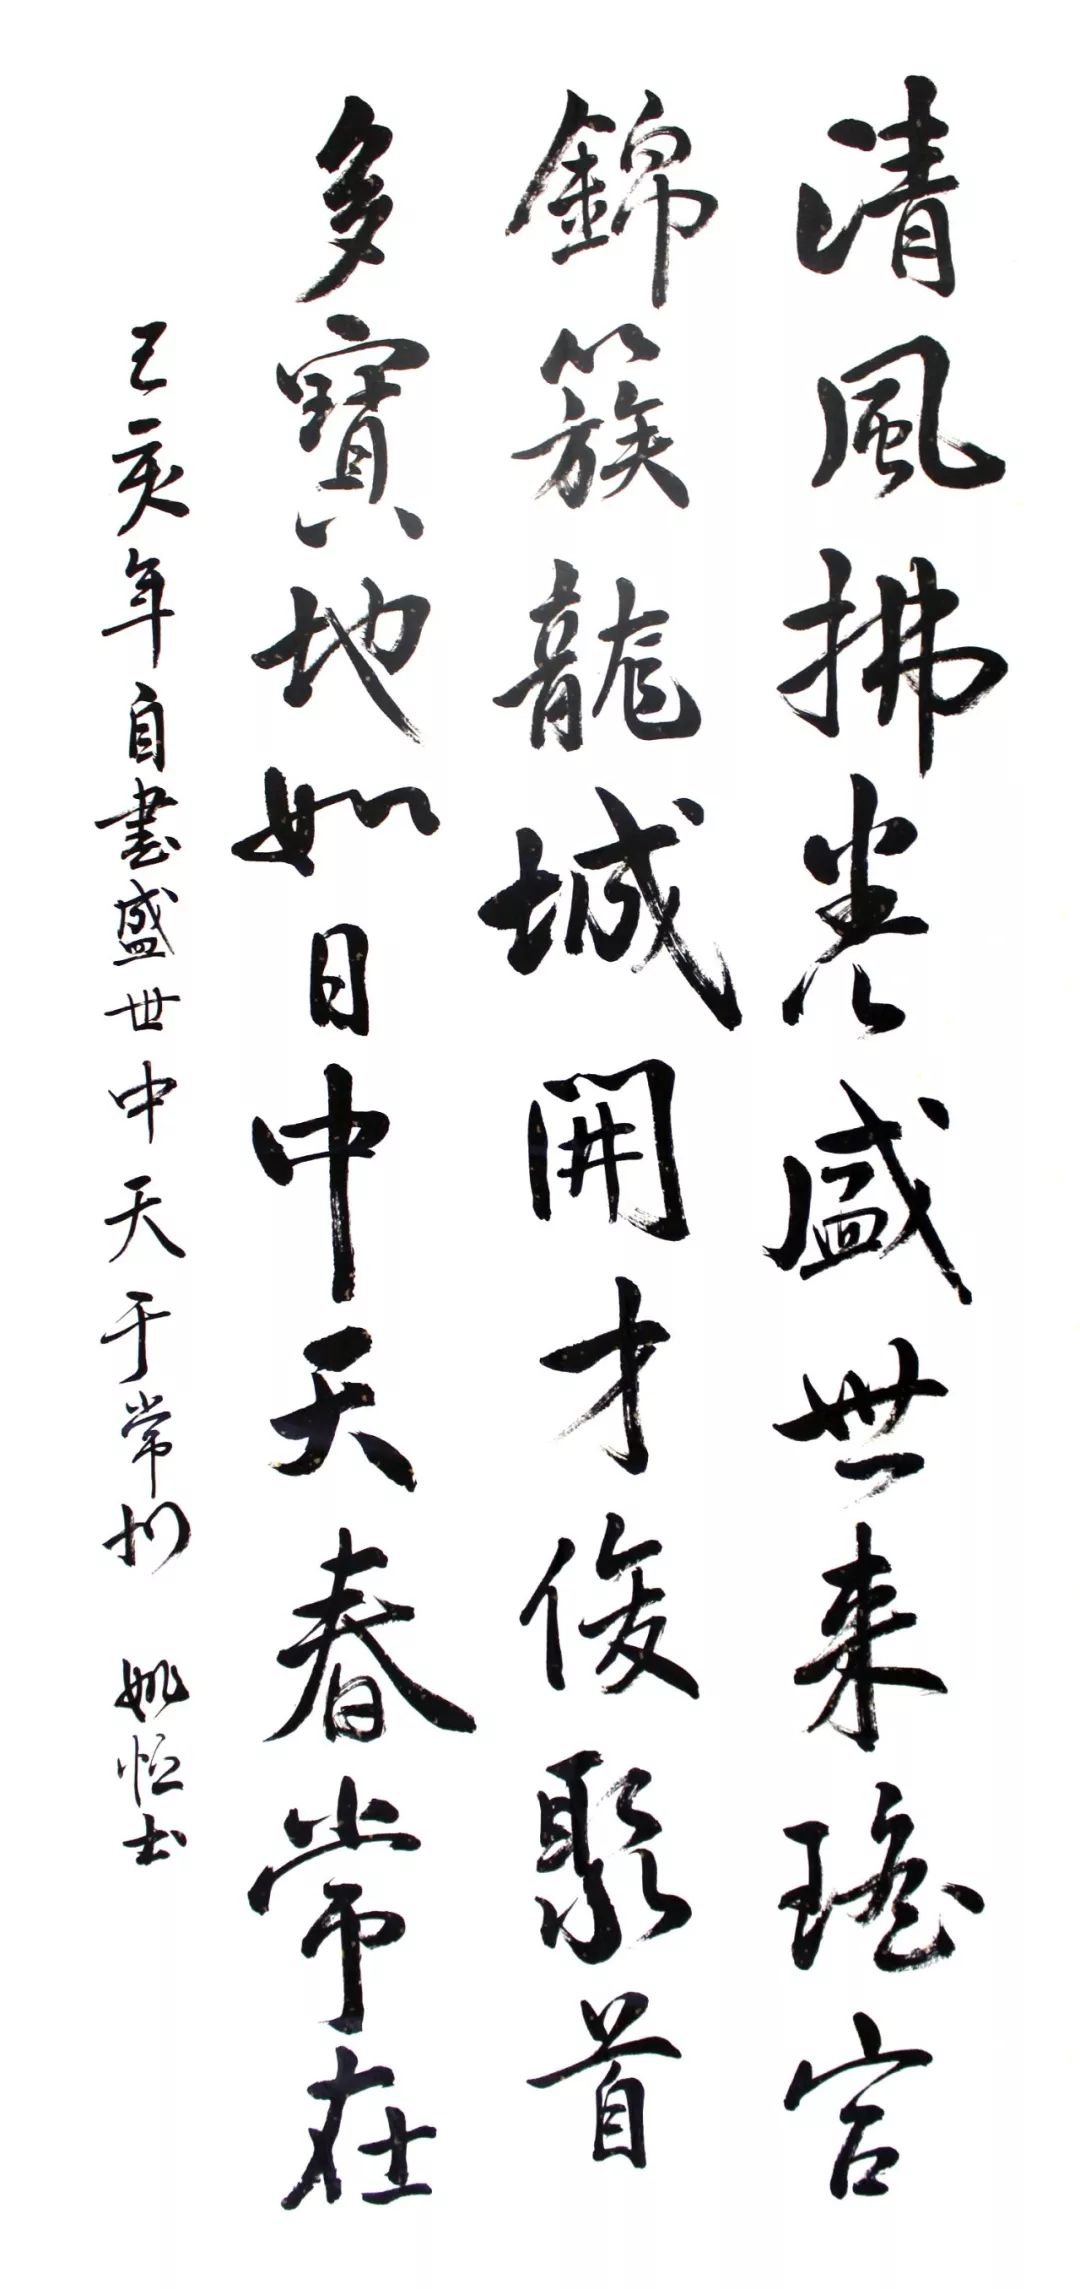 清風拂卷盛世来瑤宫
錦簇龍城開才俊聚首
多寶地如日中天春常在
己亥年自書盛世中天于常州 姚恒士